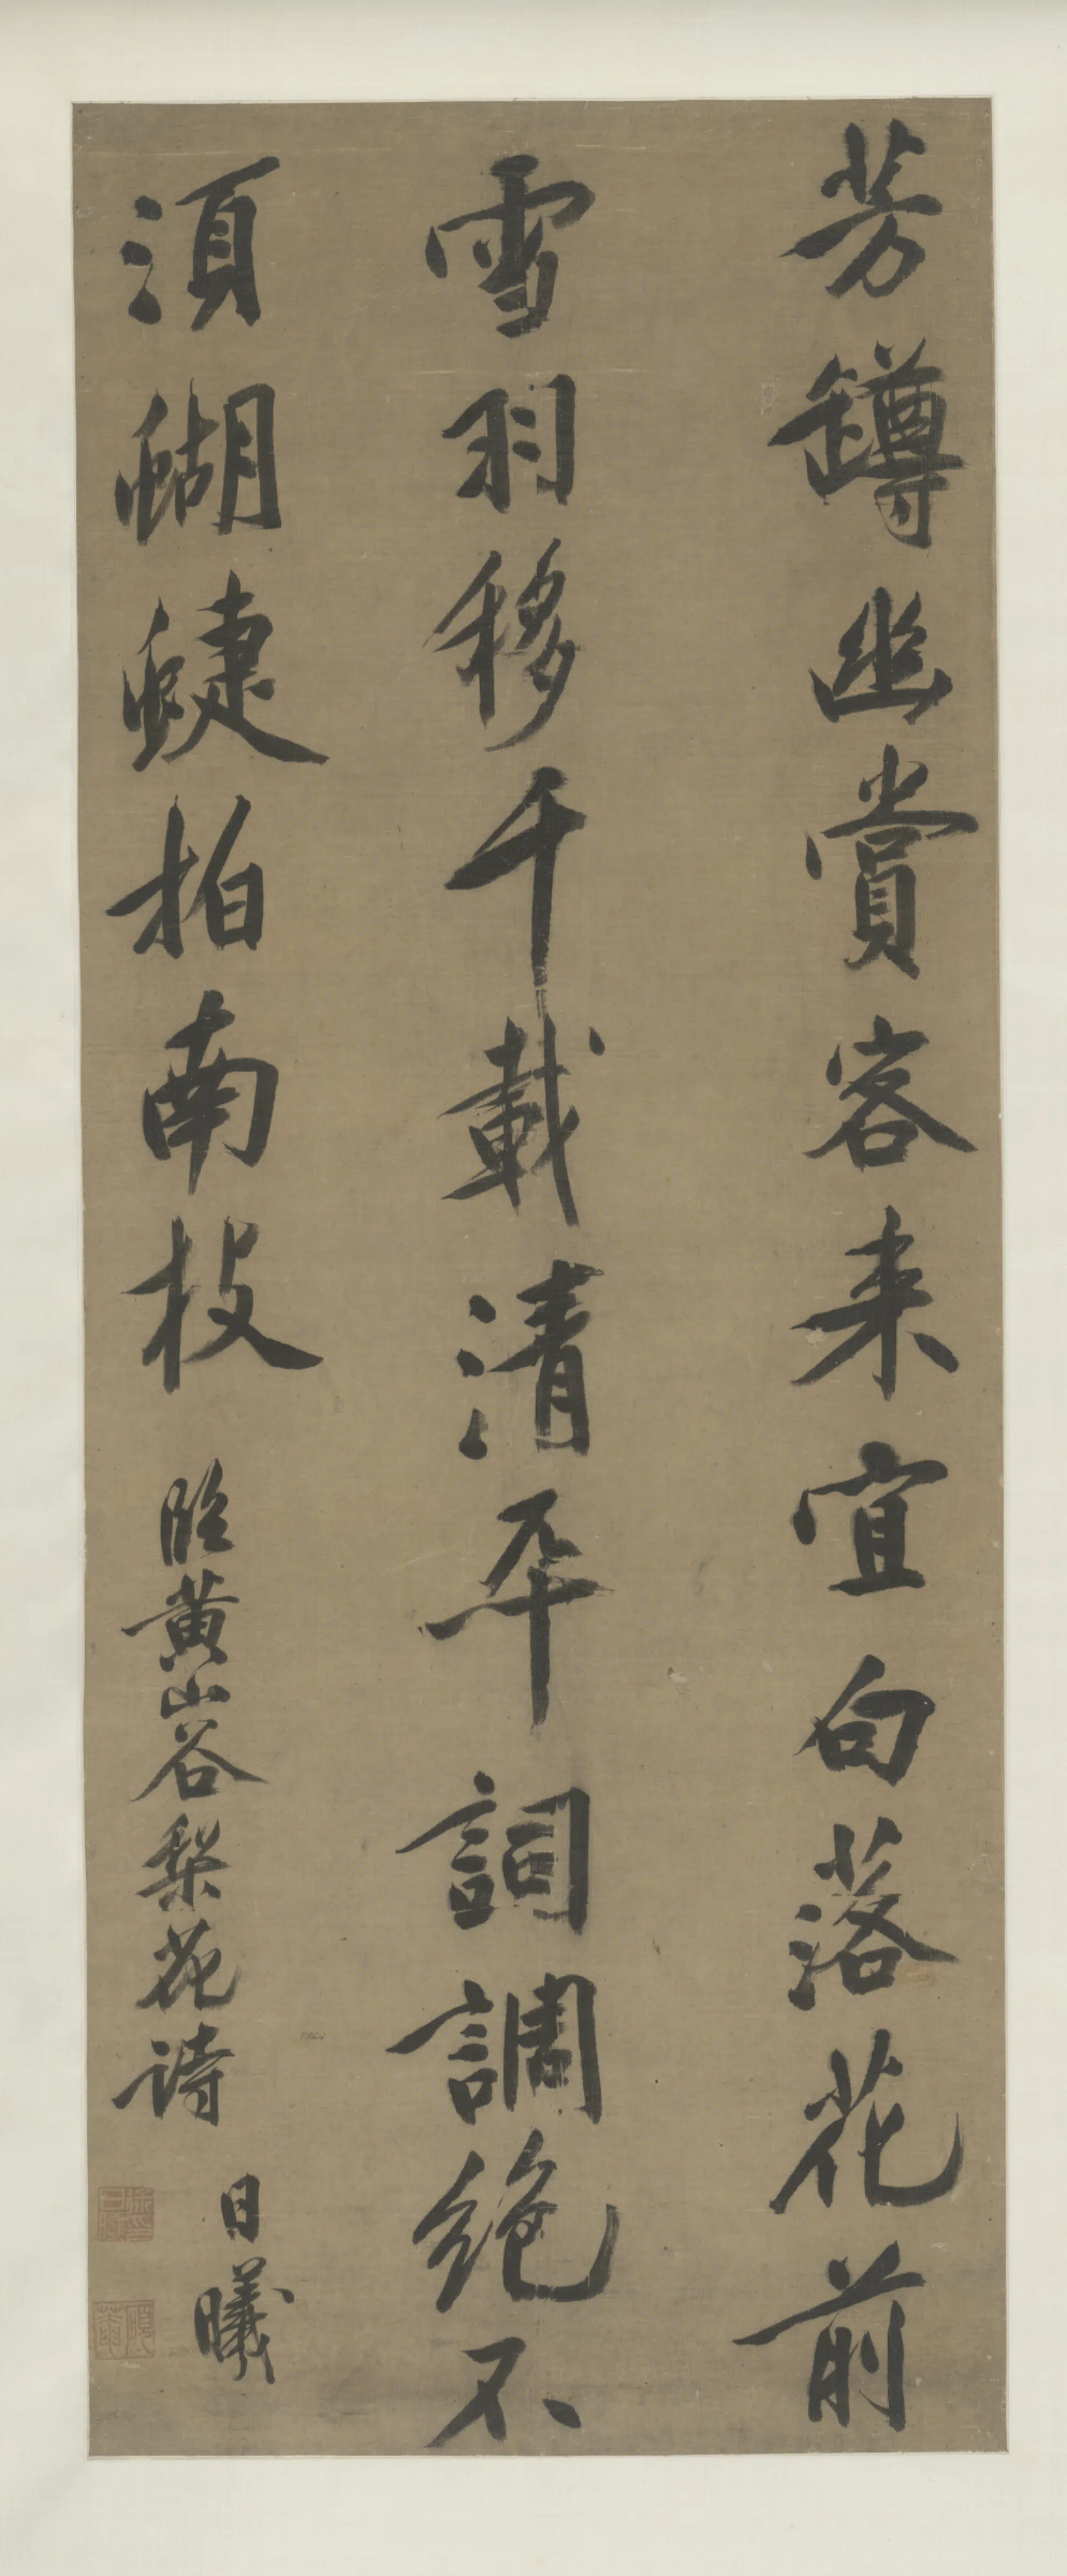 芳罇幽賞客来宜向落花前
雪羽移千載清平詞調絕不
須蝴蜨拍南枝
臨黃山谷梨花詩
日曦